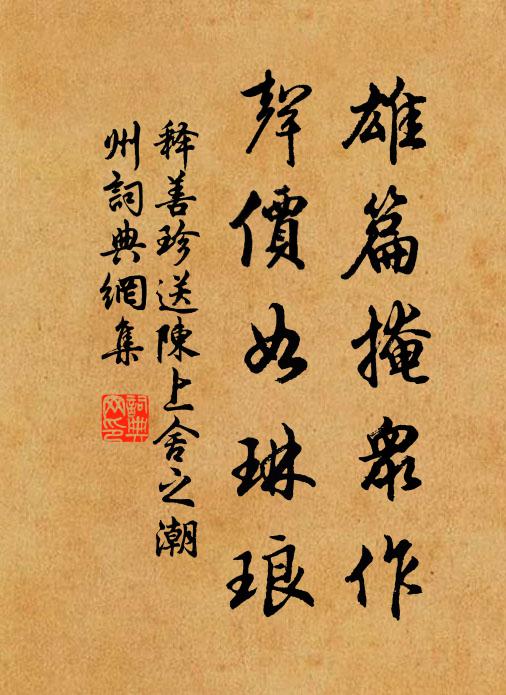 雄篇掩衆作
聲價如琳琅
释善珍送陳上舍之潮
州詞典網集
詞典网印